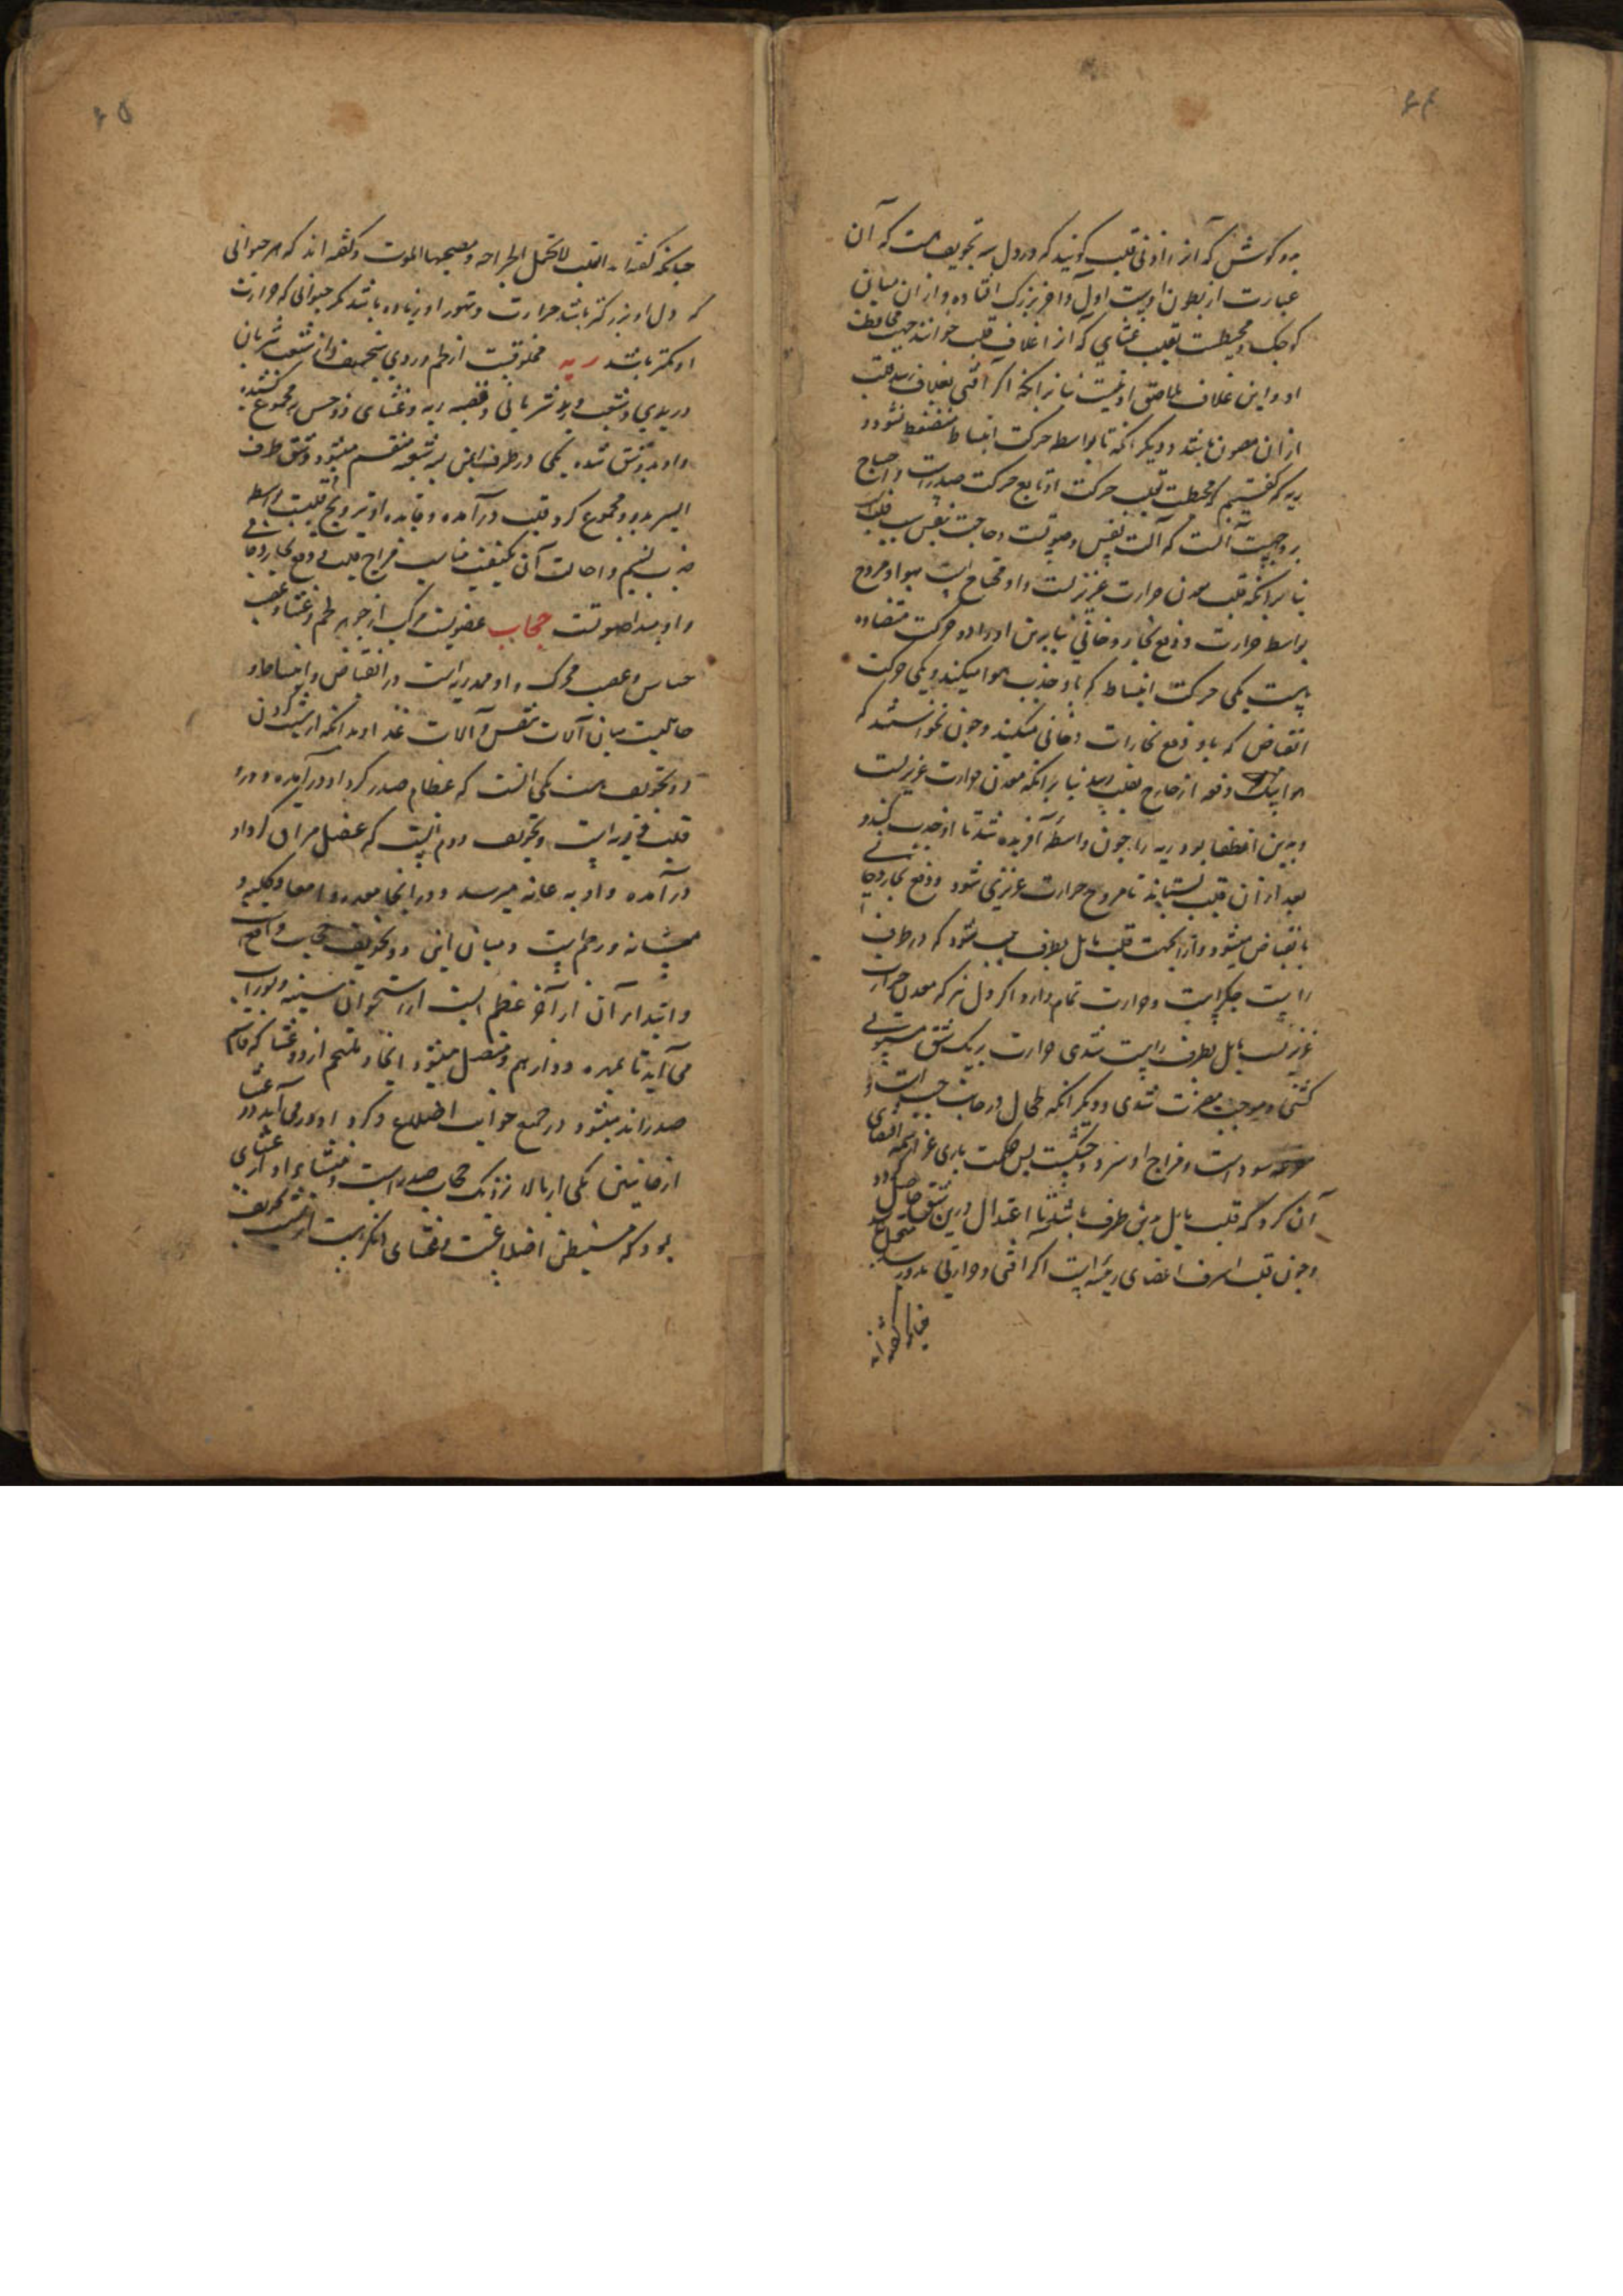 ۶۴
به دو کوش که آنرا اذنی قلب کویند که در دل سه تجویفست که آن
عبارت از بطون اوست اول و آخر بزرک افتاده و از آن میان
کوچک و محیطست بقلب غشایی که آنرا غلاف قلب خوانند جهت محافظت
او و این غلاف ملاصق او نیست بنا برانکه اکر آفتی بغلاف رسد قلب
از ان مصون باشد و دیکر انکه تا بواسطه حرکت انبساط منضغط نشود و
ریه که کفتیم که محیطست بقلب حرکت او تابع حرکت صدرست و احتیاج
بدو جهت آنست که آلت تنفس و صوتست و حاجت بتنفس بسبب قلبست
بنا برانکه قلب معدن حرارت غریزیست و او محتاج است بهواء مروح
بواسطه حرارت و دفع بخار دخانی بنا برین او را دو حرکت متضاده
هست یکی حرکت انبساط که باو جذب هوا میکند و یکی حرکت
انقباض که باو دفع بخارات دخانی میکند و چون نخواستند که
هوا بیک دفعه از خارج بقلب رسد بنا برانکه معدن حرارت غریزیست
و بدین انطفا بود ریه را چون واسطه آفریده شد تا او جذب کند و
بعد از ان قلب بستاند تا مروح حرارت غریزی شود و دفع بخار دخانی
بانقباض میشود و ازین جهت قلب مایل بطرف چپ شود که در طرف
راست جکراست و حرارت تمام دارد اکر دل نیز که معدن حرارت
غریزیست مایل بطرف راست شدی حرارت بر یک شق مستولی
کشتی و موجب مضرت شدی و دیکر انکه طحال در جانب چپ است و
سوداست و مزاج او سرد و خشکست پس حکمت باری عز اسمه اقتضای
آن کرد که قلب مایل بدین طرف باشد تا اعتدال درین شق حاصل کردد
و چون قلب اشرف اعضای رئیسه است اکر آفتی و حرارتی بدو رسد متحمل نباشد
چنانکه کفته اند
۶۵
چنانکه کفته اند القلب لا تحتمل الجراحه و یصحبها الموت و کفته اند که هر حیوانی
که دل او بزرکتر باشد حرارت و تهور او زیاده باشد مکر حیوانی که حرارت
او کمتر باشد ریه مخلوقیست از لحم وردی سخیف و از شعب شریان
وریدی و شعب ورید شریانی و قصبه ریه و غشای ذو حس بر مجموع کشیده
و او بدو شق شده یکی در طرف ایمن بسه شعبه منقسم میشود و شق طرف
ایسر بدو و مجموع کرد قلب درآمده و فایده او ترویح قلبست بواسطه
جذب نسیم و احالت آن بکیفیت مناسب مزاج قلب و دفع بخار دخانی
و او مبدا صوتست حجاب عضویست مرکب از جوهر لحم و غشا و عصب
حساس و عصب محرک و او ممد ریه است در انقباض و انبساط او
حایلیست میان آلات تنفس و آلات غذا و بدانکه از شیب کردن
دو تجویف هست یکی آنست که عظام صدر کرد او درآمده و در او
قلب و ریه است و تجویف دوم آنست که عضل مراق کرد او
درآمده و او به عانه میرسد و در اینجا معده و امعا و کلیه و
مثانه و رحم است و میان این دو تجویف حجاب واقعست
و ابتداء آن از آخر عظم است از استخوان سینه و بوراب
می آید تا بمهره دوازدهم و متصل میشود اینجا و ملتحم از دو غشا که قاسم
صدراند میشود در جمیع جوانب اضلاع و کرد او در می آید دو غشا
از جانبین یکی از بالا نزدیک حجاب صدراست و منشاء او از غشای
بود که مستبطن اضلاعست و غشای دیکر است از شیب تجویف